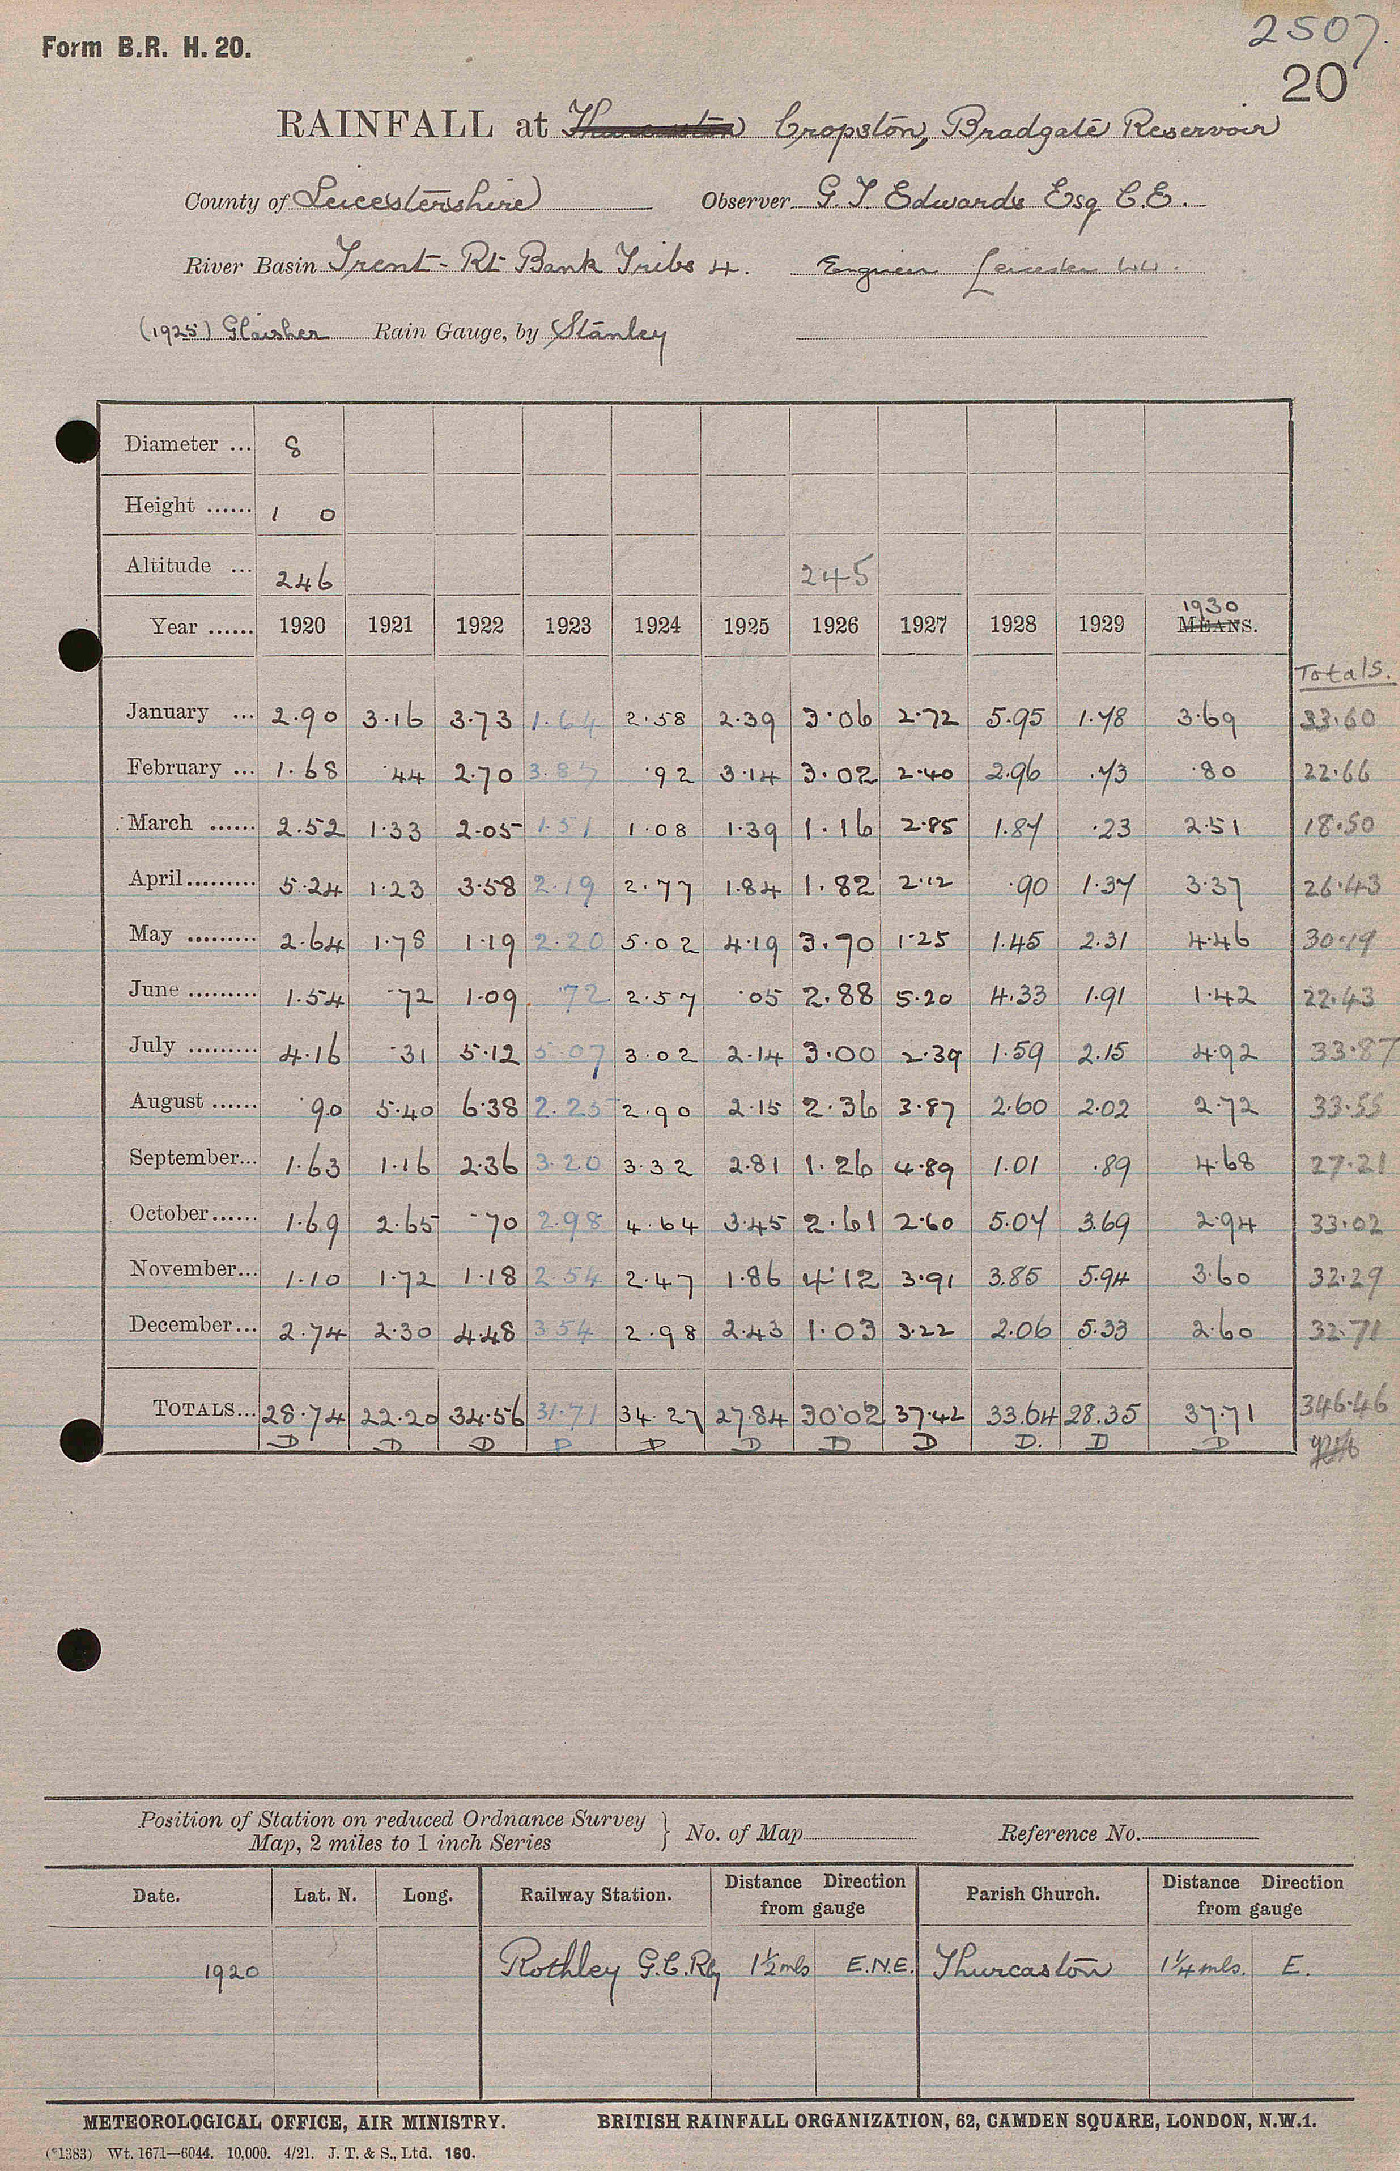 Form B.R. H. 20.
2507.
20
RAINFALL at Thurcaston Cropston, Bradgate Reservoir
County of Leicestershire Observer G. T. Edwards Esq C.E.
River Basin Trent - Rt Bank Tribs 4. Engineer Leicester W.W.
(1925) Glaisher Rain Gauge, by Stanley
Diameter ... 8
Height ...... 1 0
Altitude ... 246 245
Year ...... 1920 1921 1922 1923 1924 1925 1926 1927 1928 1929 1930 MEANS.
Totals.
January ... 2.90 3.16 3.73 1.64 2.58 2.39 3.06 2.72 5.95 1.78 3.69 33.60
February ... 1.68 .44 2.70 3.87 .92 3.14 3.02 2.40 2.96 .73 .80 22.66
March ...... 2.52 1.33 2.05 1.51 1.08 1.39 1.16 2.85 1.87 .23 2.51 18.50
April ......... 5.24 1.23 3.58 2.19 2.77 1.84 1.82 2.12 .90 1.37 3.37 26.43
May ......... 2.64 1.78 1.19 2.20 5.02 4.19 3.70 1.25 1.45 2.31 4.46 30.19
June ......... 1.54 .72 1.09 .72 2.57 .05 2.88 5.20 4.33 1.91 1.42 22.43
July ......... 4.16 .31 5.12 5.07 3.02 2.14 3.00 2.39 1.59 2.15 4.92 33.87
August ...... .90 5.40 6.38 2.25 2.90 2.15 2.36 3.87 2.60 2.02 2.72 33.55
September... 1.63 1.16 2.36 3.20 3.32 2.81 1.26 4.89 1.01 .89 4.68 27.21
October...... 1.69 2.65 .70 2.98 4.64 3.45 2.61 2.60 5.07 3.69 2.94 33.02
November... 1.10 1.72 1.18 2.54 2.47 1.86 4.12 3.91 3.85 5.94 3.60 32.29
December... 2.74 2.30 4.48 3.54 2.98 2.43 1.03 3.22 2.06 5.33 2.60 32.71
TOTALS... 28.74 22.20 34.56 31.71 34.27 27.84 30.02 37.42 33.64 28.35 37.71 346.46
D D D D D D D D D. D D
Position of Station on reduced Ordnance Survey
Map, 2 miles to 1 inch Series } No. of Map Reference No.
Date. Lat. N. Long. Railway Station. Distance Direction from gauge Parish Church. Distance Direction from gauge
1920 Rothley G.C.Rly 1½ mls E.N.E. Thurcaston 1¼ mls. E.
METEOROLOGICAL OFFICE, AIR MINISTRY. BRITISH RAINFALL ORGANIZATION, 62, CAMDEN SQUARE, LONDON, N.W.1.
(*1383) Wt. 1671—6044. 10,000. 4/21. J. T. & S., Ltd. 160.